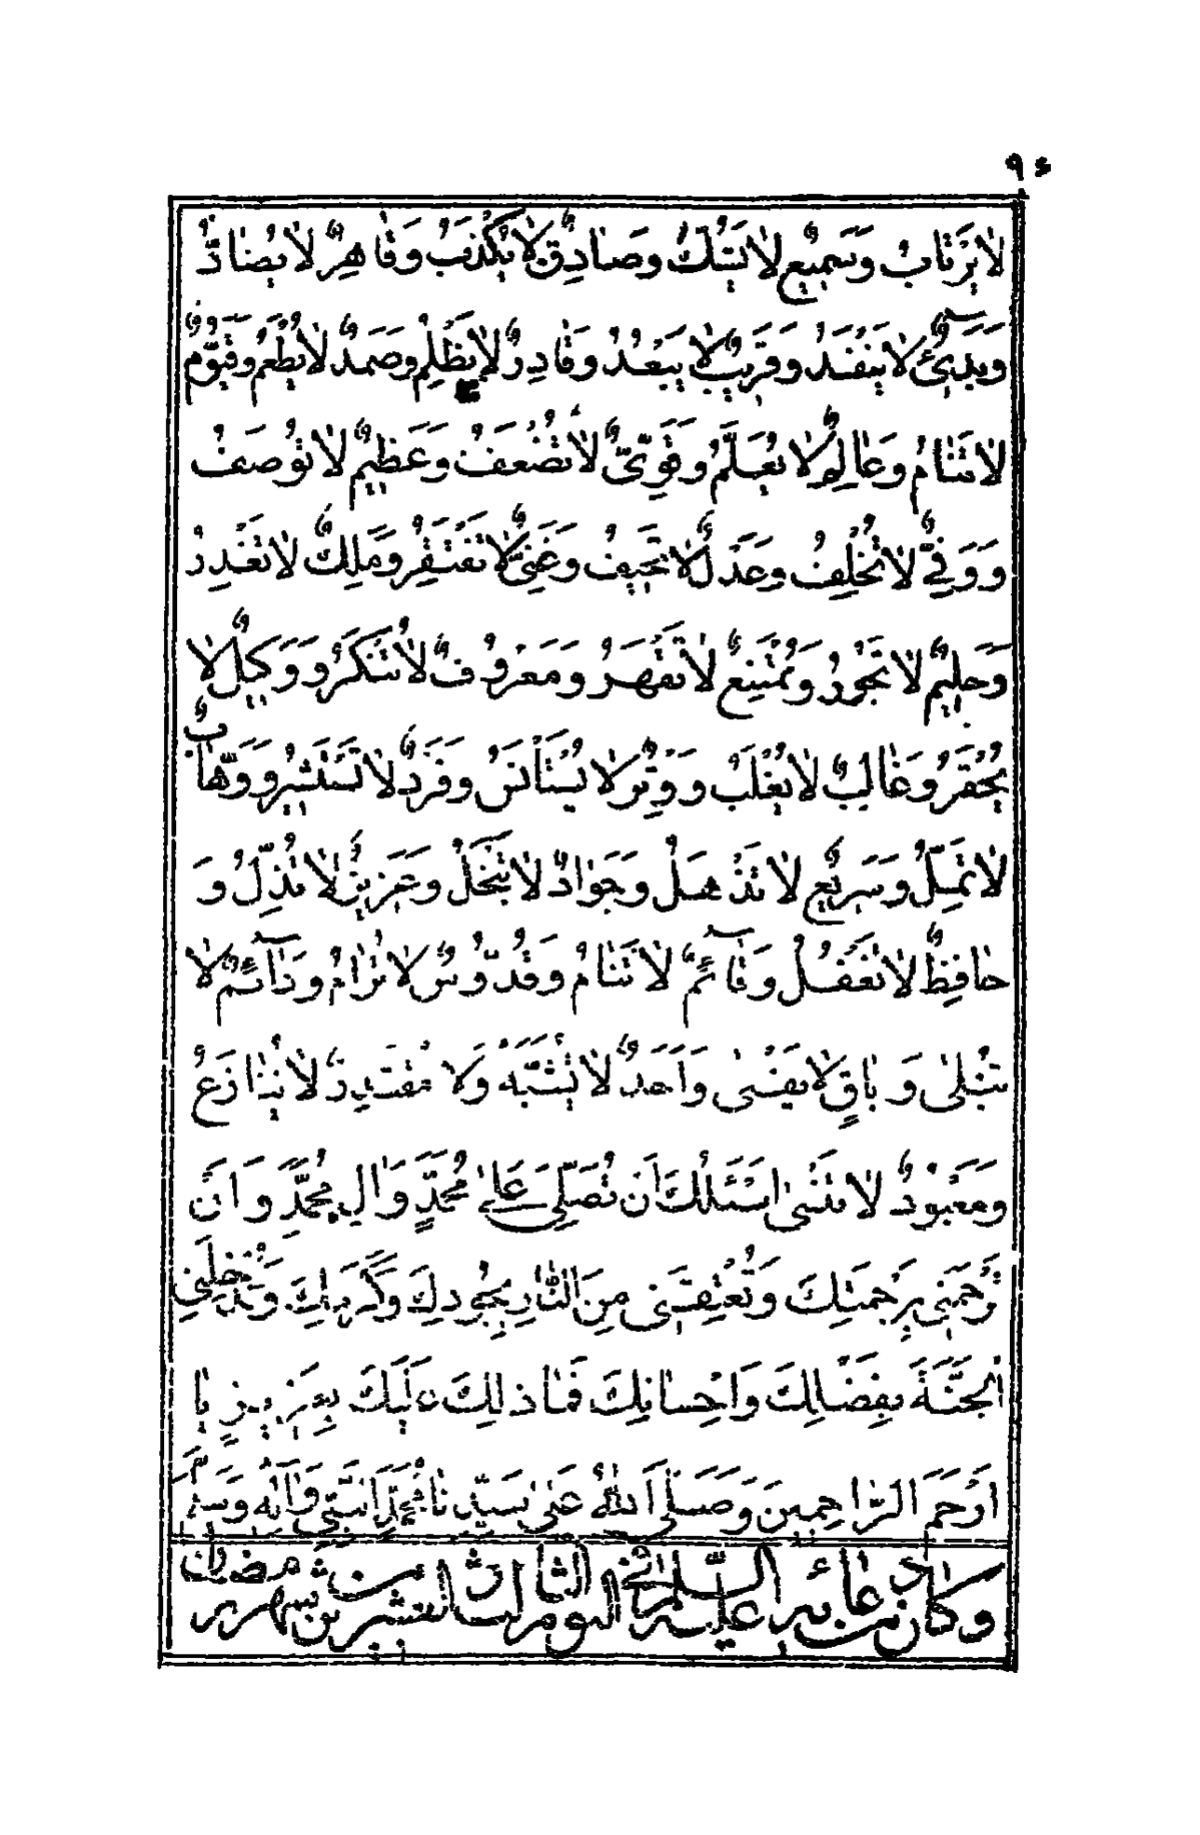 ٩٤
لَا يَرْتَابُ وَسَمِيعٌ لَا يَشُكُّ وَصَادِقٌ لَا يَكْذِبُ وَقَاهِرٌ لَا يُضَادُّ
وَبَدِئٌ لَا يَنْفَدُ وَقَرِيبٌ لَا يَبْعُدُ وَقَادِرٌ لَا يَظْلِمُ وَصَمَدٌ لَا يُطْعَمُ وَقَيُّومٌ
لَا تَنَامُ وَعَالِمٌ لَا يُعَلَّمُ وَقَوِيٌّ لَا تَضْعُفُ وَعَظِيمٌ لَا تُوصَفُ
وَوَفِيٌّ لَا تُخْلِفُ وَعَدْلٌ لَا تَحِيفُ وَغَنِيٌّ لَا تَفْتَقِرُ وَمَلِكٌ لَا تَغْدِرُ
وَحَلِيمٌ لَا تَجُورُ وَمُمْتَنِعٌ لَا تُقْهَرُ وَمَعْرُوفٌ لَا تُنْكَرُ وَوَكِيلٌ لَا
يُحْقَرُ وَغَالِبٌ لَا يُغْلَبُ وَوِتْرٌ لَا يُسْتَأْنَسُ وَفَرْدٌ لَا تَسْتَشِيرُ وَوَهَّابٌ
لَا تَمِلُّ وَسَرِيعٌ لَا تَذْهَلُ وَجَوَادٌ لَا يَبْخَلُ وَعَزِيزٌ لَا تُذِلُّ وَ
حَافِظٌ لَا تَغْفُلُ وَقَآئِمٌ لَا تَنَامُ وَقُدُّوسٌ لَا تُرَامُ وَدَآئِمٌ لَا
تَبْلَى وَبَاقٍ لَا يَفْنَى وَاَحَدٌ لَا تُشَبَّهُ وَلَا مُقْتَدِرٌ لَا يُنَازَعُ
وَمَعْبُودٌ لَا تُنْسَى اَسْئَلُكَ اَنْ تُصَلِّيَ عَلَى مُحَمَّدٍ وَالِ مُحَمَّدٍ وَاَنْ
تَرْحَمَنِي بِرَحْمَتِكَ وَتُعْتِقَنِي مِنَ النَّارِ بِجُودِكَ وَكَرَمِكَ وَتُدْخِلَنِي
الْجَنَّةَ بِفَضْلِكَ وَاِحْسَانِكَ فَمَا ذَلِكَ عَلَيْكَ بِعَزِيزٍ يَا
اَرْحَمَ الرَّاحِمِينَ وَصَلَّى اللهُ عَلَى سَيِّدِنَا مُحَمَّدٍ النَّبِيِّ وَآلِهِ وَسَلَّمَ
وَكَانَ مِنْ دُعَائِهِ عَلَيْهِ السَّلَامُ فِي الْيَوْمِ الثَّالِثِ وَالْعِشْرِينَ مِنْ شَهْرِ رَمَضَانَ